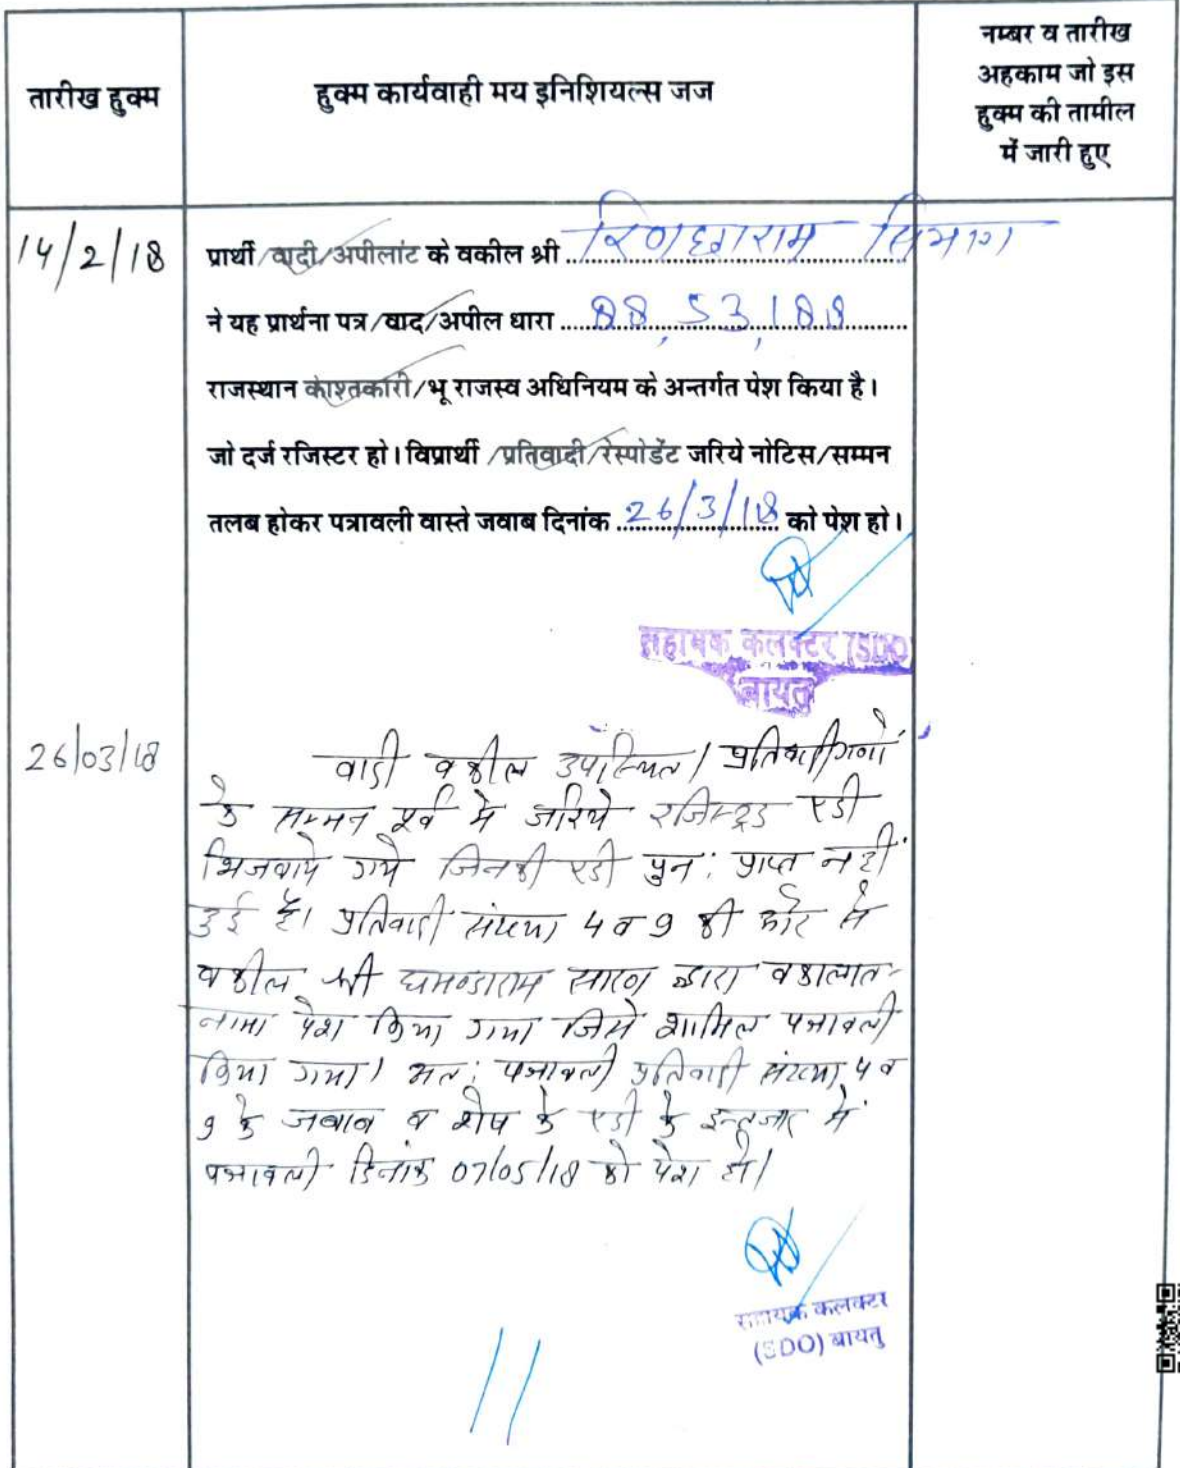 तारीख हुक्म
हुक्म कार्यवाही मय इनिशियल्स जज
नम्बर व तारीख
अहकाम जो इस
हुक्म की तामील
में जारी हुए
14/2/18
प्रार्थी/वादी/अपीलांट के वकील श्री रिणछाराम सियाग
ने यह प्रार्थना पत्र/वाद/अपील धारा 88, 53, 188
राजस्थान काश्तकारी/भू राजस्व अधिनियम के अन्तर्गत पेश किया है।
जो दर्ज रजिस्टर हो। विप्रार्थी/प्रतिवादी/रेस्पोडेंट जरिये नोटिस/सम्मन
तलब होकर पत्रावली वास्ते जवाब दिनांक 26/3/18 को पेश हो।
सहायक कलक्टर (SDO)
बायतु
26/03/18
वादी वकील उपस्थित। प्रतिवादीगणों
के सम्मन पूर्व में जरिये रजिस्ट्रड एडी
भिजवाये गये जिनकी एडी पुन: प्राप्त नहीं
हुई है। प्रतिवादी संख्या 4 व 9 की ओर से
वकील श्री घमण्डाराम सारण द्वारा वकालात-
नामा पेश किया गया जिसे शामिल पत्रावली
किया गया। अत: पत्रावली प्रतिवादी संख्या 4 व
9 के जवाब व शेष के एडी के इन्तजार में
पत्रावली दिनांक 07/05/18 को पेश हो।
सहायक कलक्टर
(SDO) बायतु